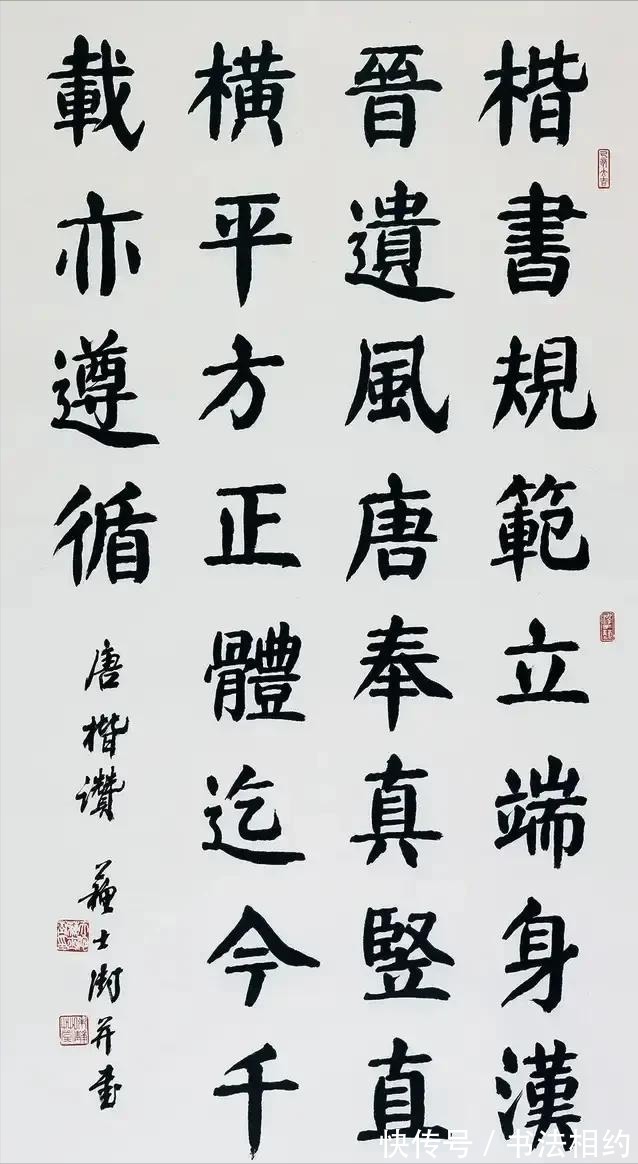 楷書規範立端身漢
晉遺風唐奉真竪直
橫平方正體迄今千
載亦遵循
唐楷讚 蘇士澍并書
快传号/书法相约